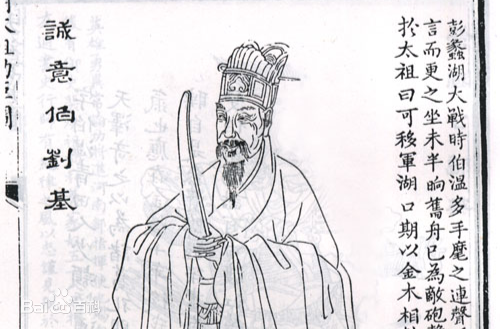 彭蠡湖大戰時伯溫多手麾之連聲
言而更之坐未半晌舊舟已為敵砲
於太祖曰可移軍湖口期以金木相
誠意伯劉基
太祖功臣圖
Bai百科